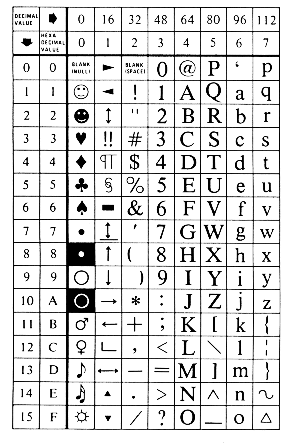 DECIMAL VALUE ➡ 0 16 32 48 64 80 96 112
⬇ HEXA DECIMAL VALUE 0 1 2 3 4 5 6 7
0 0 BLANK (NULL) ► BLANK (SPACE) 0 @ P ‘ p
1 1 ☺ ◄ ! 1 A Q a q
2 2 ☻ ↕ " 2 B R b r
3 3 ♥ !! # 3 C S c s
4 4 ♦ ¶ $ 4 D T d t
5 5 ♣ § % 5 E U e u
6 6 ♠ ▬ & 6 F V f v
7 7 • ↨ ' 7 G W g w
8 8 ◘ ↑ ( 8 H X h x
9 9 ○ ↓ ) 9 I Y i y
10 A ◙ → * : J Z j z
11 B ♂ ← + ; K [ k {
12 C ♀ ∟ , < L \ l ¦
13 D ♪ ↔ — = M ] m }
14 E ♫ ▲ . > N ^ n ~
15 F ☼ ▼ / ? O _ o △